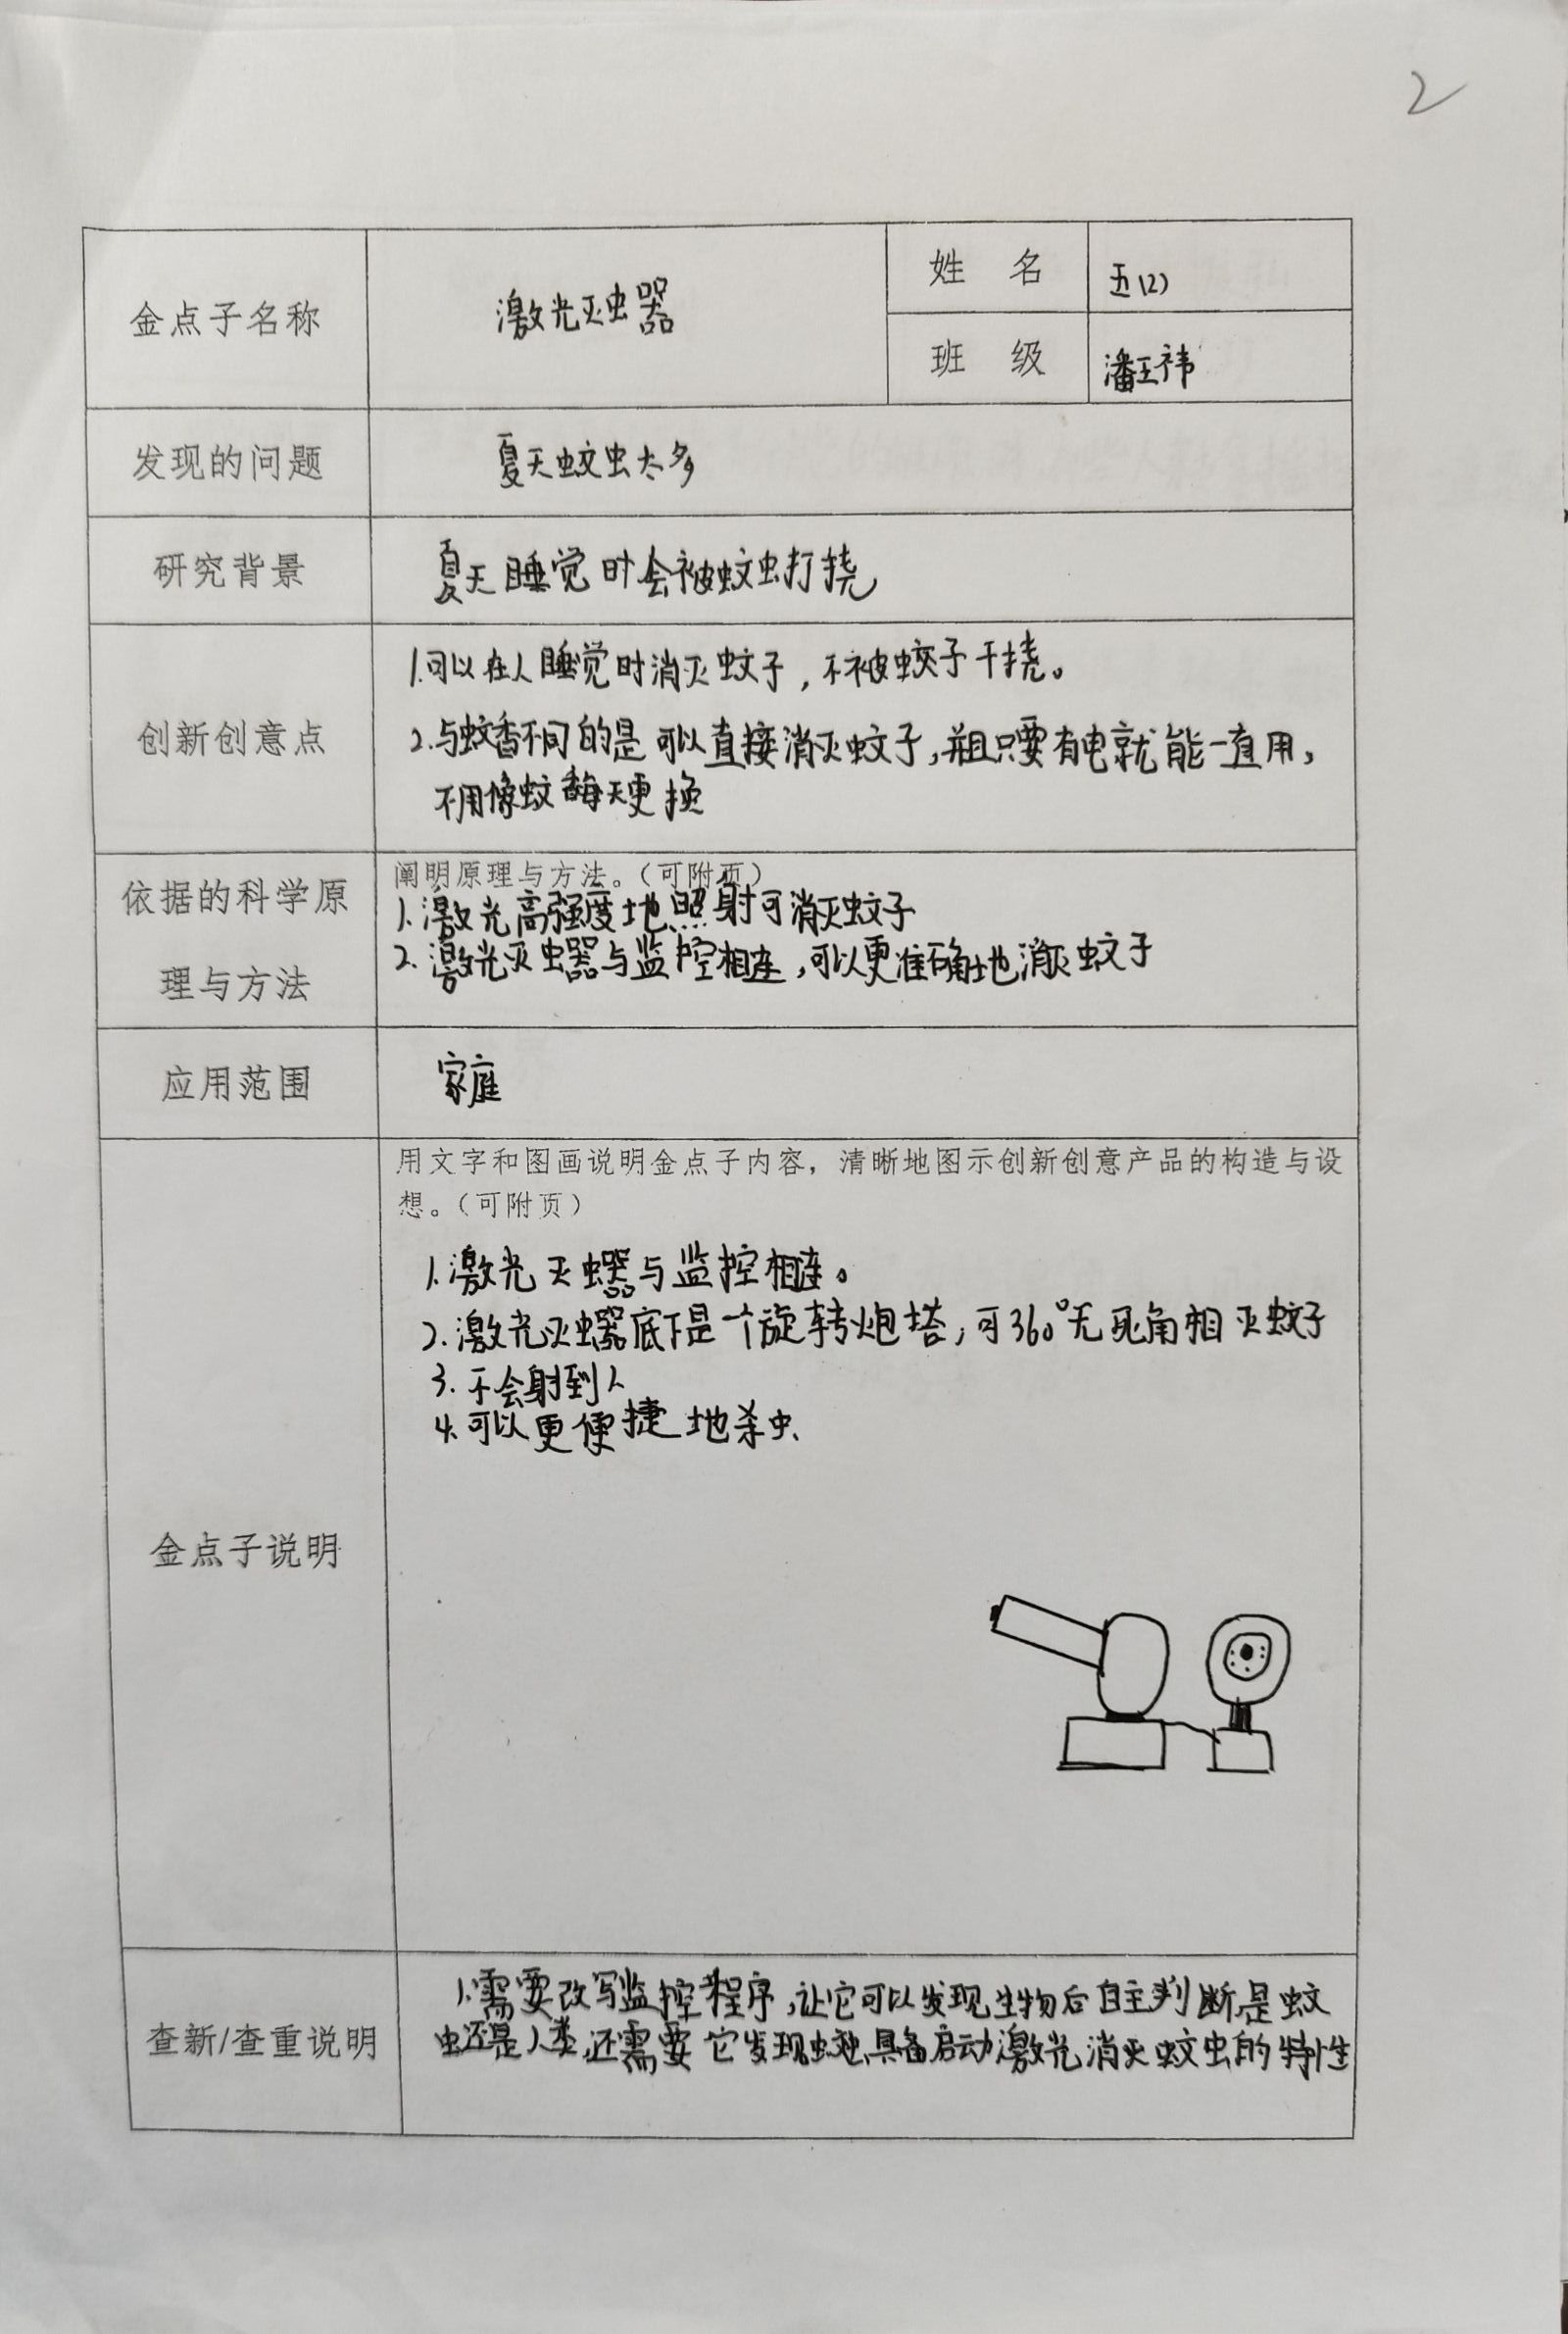 2
金点子名称 激光灭虫器 姓 名 五(2)
班 级 潘王祎
发现的问题 夏天蚊虫太多
研究背景 夏天睡觉时会被蚊虫打挠
创新创意点
1.可以在人睡觉时消灭蚊子,不被蚊子干挠。
2.与蚊香不同的是可以直接消灭蚊子,并且只要有电就能一直用,
不用像蚊香每天更换
依据的科学原
理与方法
阐明原理与方法。(可附页)
1.激光高强度地照射可消灭蚊子
2.激光灭虫器与监控相连,可以更准确地消灭蚊子
应用范围 家庭
金点子说明
用文字和图画说明金点子内容,清晰地图示创新创意产品的构造与设
想。(可附页)
1.激光灭虫器与监控相连。
2.激光灭虫器底下是一个旋转炮塔,可360°无死角相灭蚊子
3.不会射到人
4.可以更便捷地杀虫
查新/查重说明
1.需要改写监控程序,让它可以发现生物后自主判断是蚊
虫还是人类,还需要它发现蚊虫具备启动激光消灭蚊虫的特性